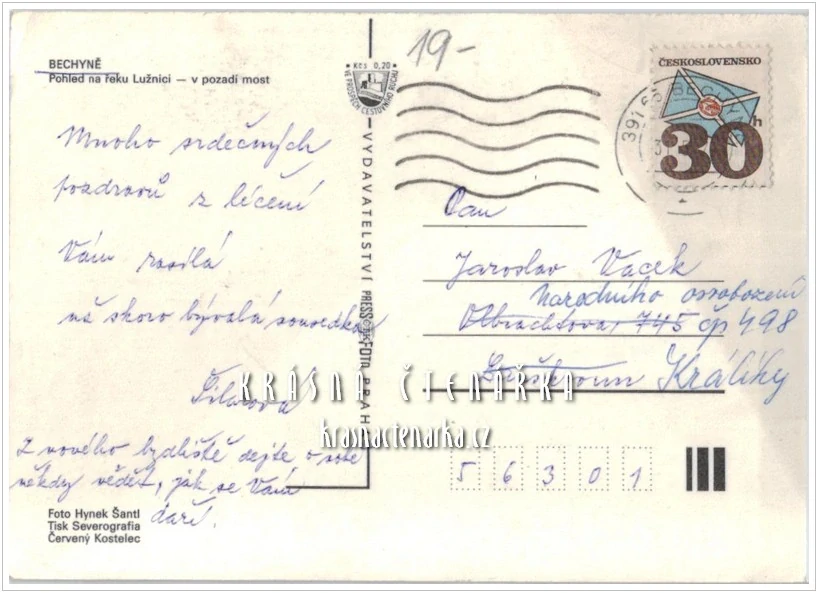 BECHYNĚ
Pohled na řeku Lužnici — v pozadí most
Mnoho srdečných
pozdravů z léčení
Vám posílá
už skoro bývalá sousedka
Z nového bydliště dejte o sobe
někdy vědět, jak se Vám
daří.
Foto Hynek Šantl
Tisk Severografia
Červený Kostelec
Kčs 0,20
VE PROSPĚCH CESTOVNÍHO RUCHU
VYDAVATELSTVÍ PRESSFOTO PRAHA
19-
ČESKOSLOVENSKO
30h
391 65 BECHYNĚ
Pan
Jaroslav Vacek
Národního osvobození
Olbrachtova 745 čp 498
Králíky
56301
KRÁSNÁ ČTENÁŘKA
krasnactenarka.cz